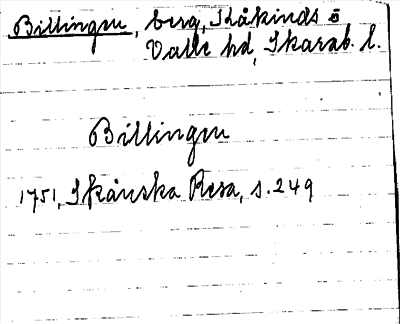 Billingen, berg, Kåkinds o
Valle hd, Skarab. l.
Billingen
1751, Skånska Resa, s. 249